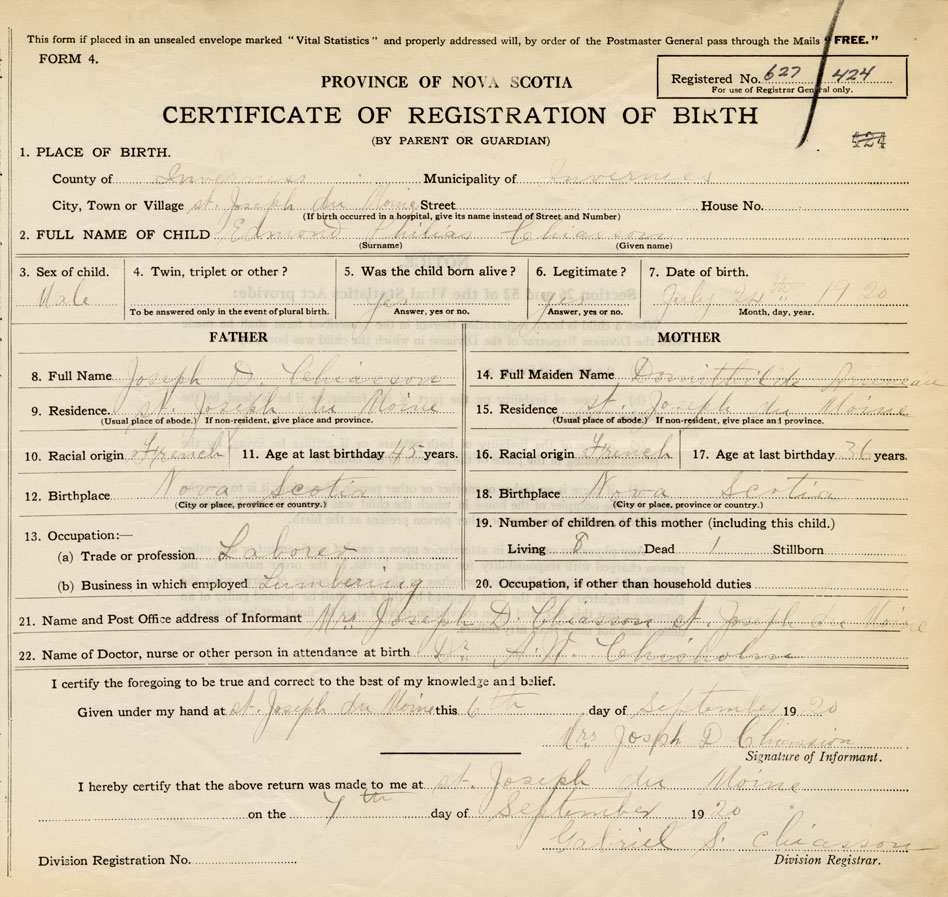 This form if placed in an unsealed envelope marked "Vital Statistics" and properly addressed will, by order of the Postmaster General pass through the Mails "FREE."
FORM 4.
Registered No. 627 424
For use of Registrar General only.
PROVINCE OF NOVA SCOTIA
CERTIFICATE OF REGISTRATION OF BIRTH
(BY PARENT OR GUARDIAN)
424
1. PLACE OF BIRTH.
County of Inverness Municipality of Inverness
City, Town or Village St. Joseph du Moine Street House No.
(If birth occurred in a hospital, give its name instead of Street and Number)
2. FULL NAME OF CHILD Edmond Philias Chiasson
(Surname) (Given name)
3. Sex of child. 4. Twin, triplet or other? 5. Was the child born alive? 6. Legitimate? 7. Date of birth.
Male yes yes July 24th 1920
To be answered only in the event of plural birth. Answer, yes or no. Answer, yes or no. Month, day, year.
FATHER MOTHER
8. Full Name Joseph D. Chiasson 14. Full Maiden Name Domithilde
9. Residence. St. Joseph du Moine 15. Residence St. Joseph du Moine
(Usual place of abode.) If non-resident, give place and province. (Usual place of abode.) If non-resident, give place and province.
10. Racial origin French 11. Age at last birthday 45 years. 16. Racial origin French 17. Age at last birthday 36 years.
12. Birthplace Nova Scotia 18. Birthplace Nova Scotia
(City or place, province or country.) (City or place, province or country.)
13. Occupation:— 19. Number of children of this mother (including this child.)
(a) Trade or profession Laborer Living 8 Dead 1 Stillborn
(b) Business in which employed Lumbering 20. Occupation, if other than household duties
21. Name and Post Office address of Informant Mrs Joseph D. Chiasson St. Joseph du Moine
22. Name of Doctor, nurse or other person in attendance at birth Dr. Chisholm
I certify the foregoing to be true and correct to the best of my knowledge and belief.
Given under my hand at St. Joseph du Moine this 6th day of September 1920
Mrs Joseph D Chiassion
Signature of Informant.
I hereby certify that the above return was made to me at St. Joseph du Moine
on the 7th day of September 1920
Gabriel S. Chiasson
Division Registration No. Division Registrar.